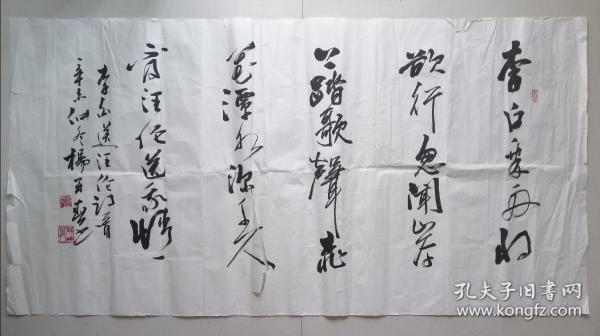 李白乘舟将
欲行忽闻岸
上踏歌聲桃
花潭水深千尺
不及汪伦送我情
李白送汪伦诗一首
辛未仲冬楊
孔夫子旧书网
www.kongfz.com